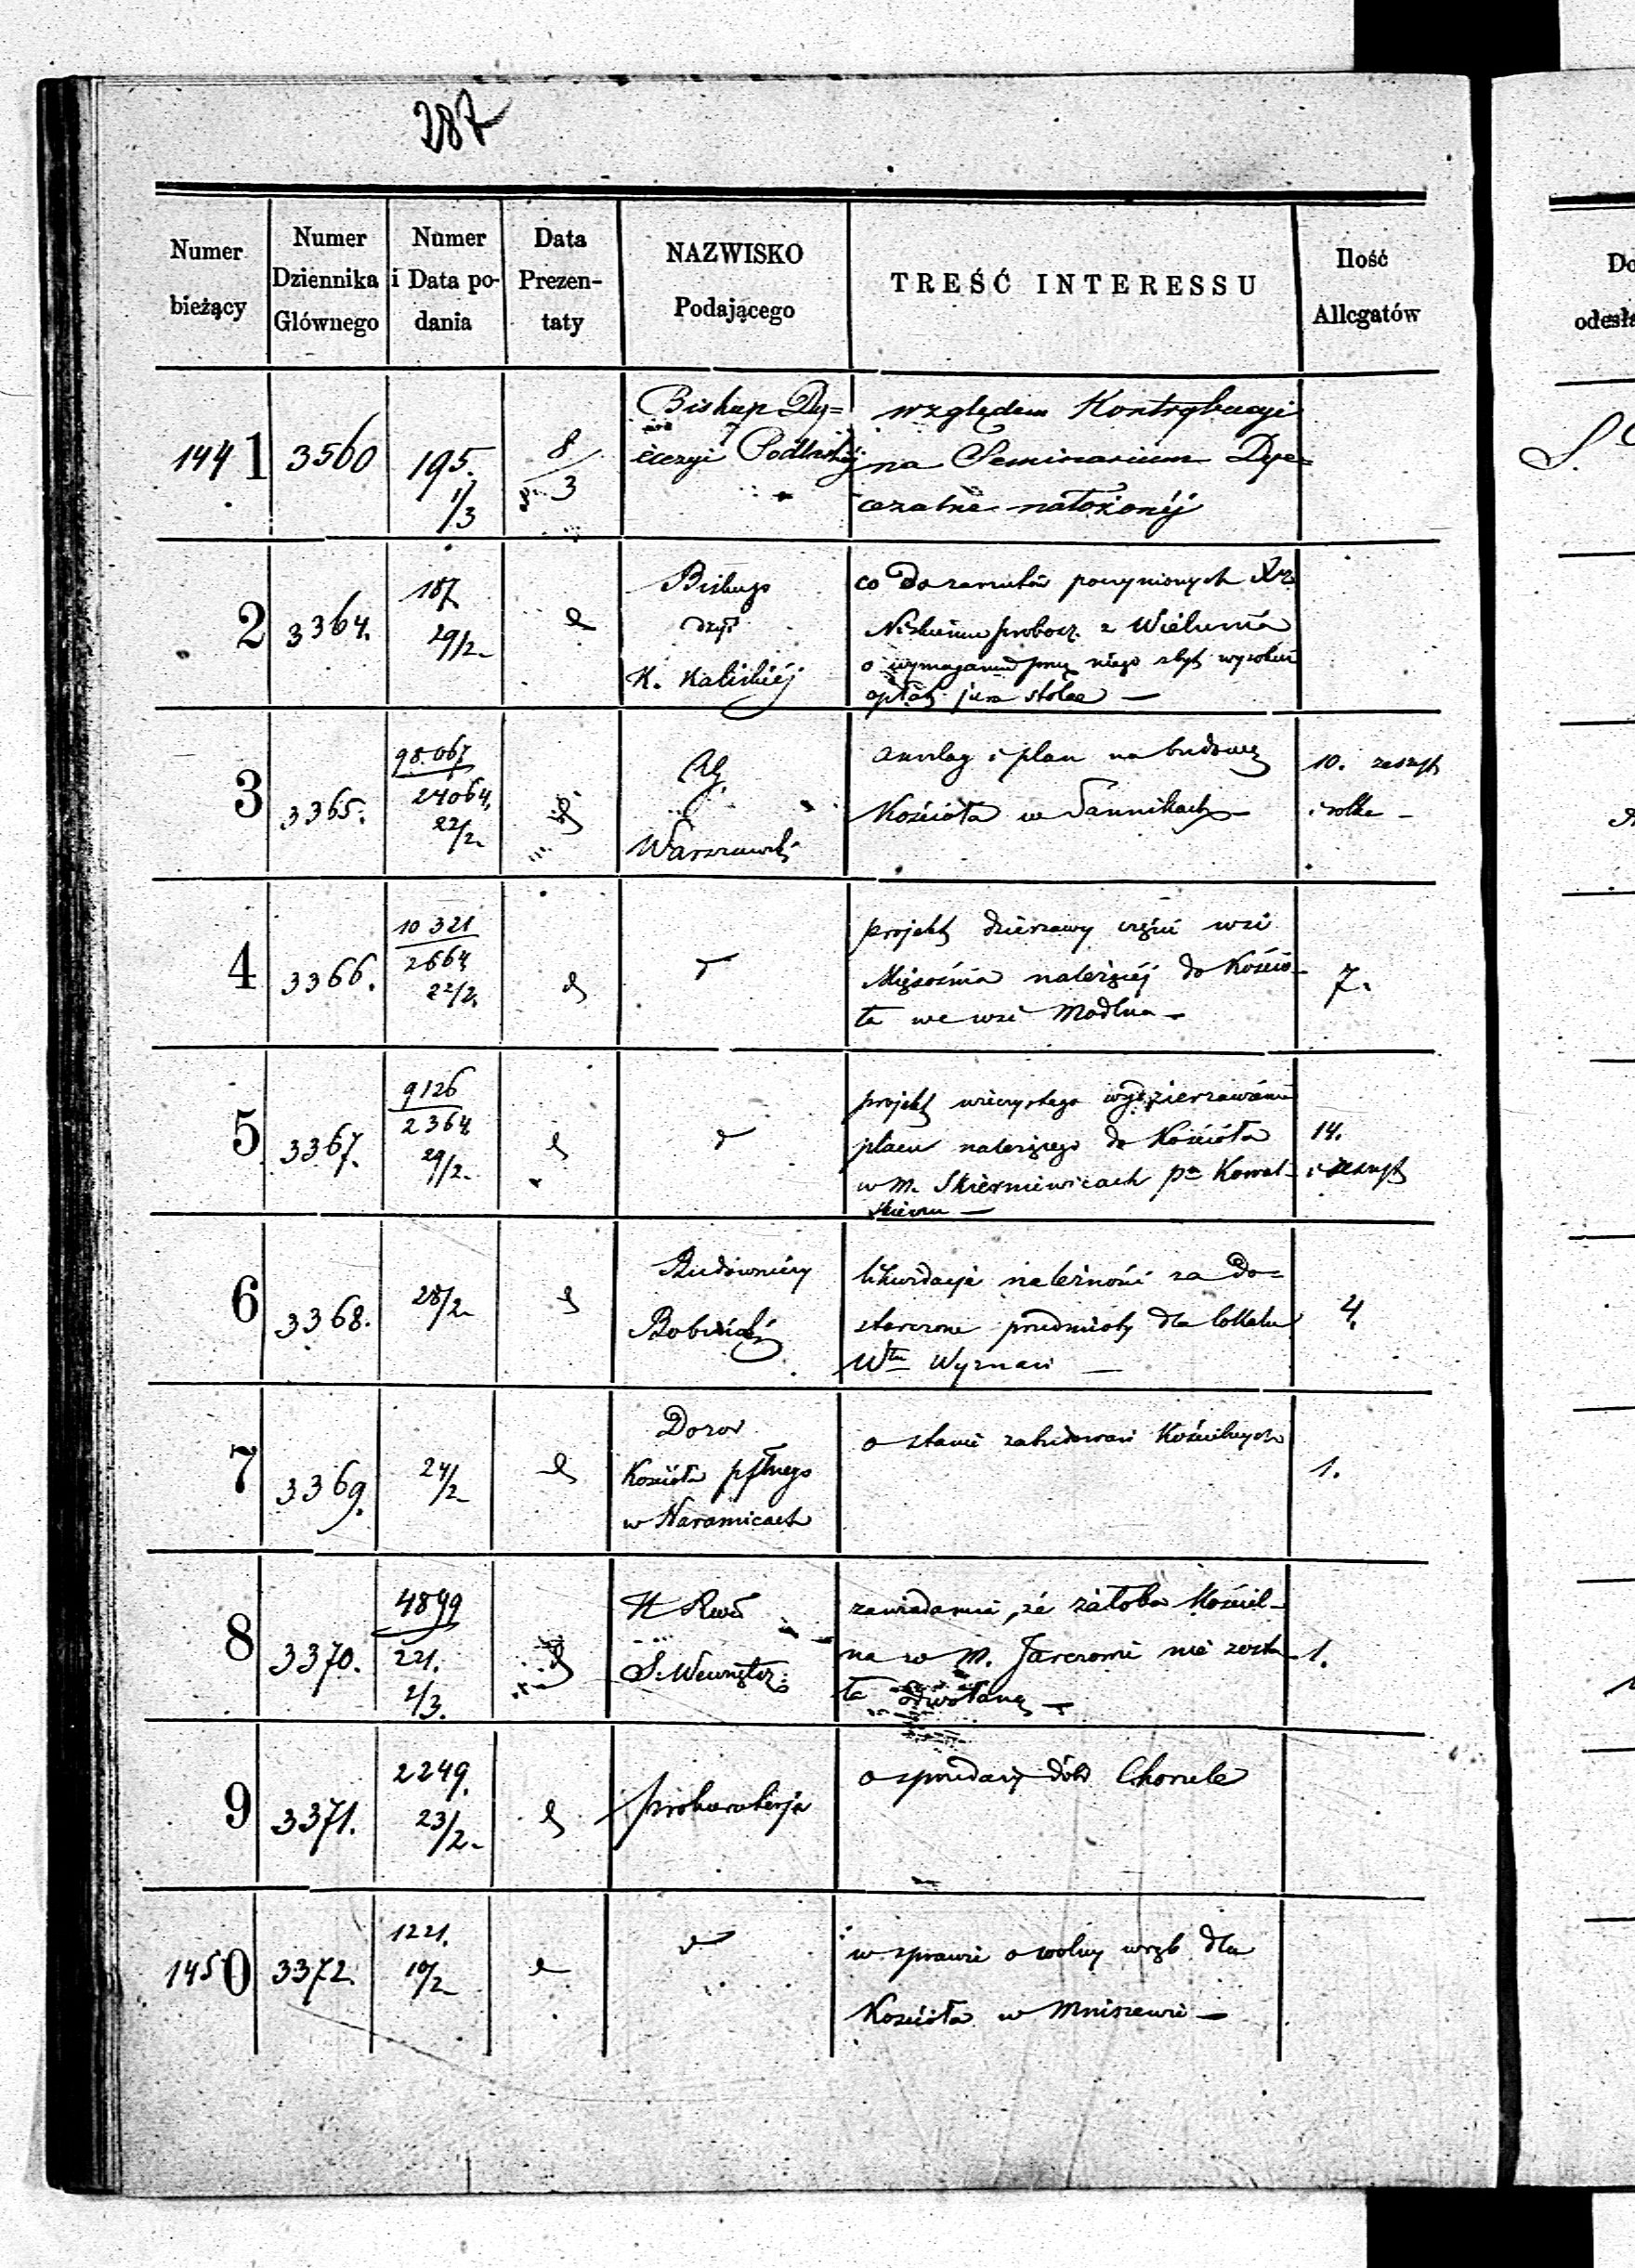 287
Numer bieżący
Numer Dziennika Głównego
Numer i Data podania
Data Prezentaty
NAZWISKO Podającego
TREŚĆ INTERESSU
Ilość Allegatów
1441 3560 195. 1/3 8/3
Biskup Dy=
Podlaskiej
względem Kontrybucyi
na Seminarium Dye=
cezalne nałożonéj
2 3364. 187 29/2
Biskup
K. Kaliskiéj
co do zarzutów poczynionych
probosz. z Wielunia
o wymaganie przez niego zbyt wysokich
opłat jura stolae —
3 3365. 98.067 24064 22/2
Warszawski
anszlag i plan na budowę
Kościoła w Sannikach —
10. zeszyt
i rolka —
4 3366. 10321 2664 22/2.
projekt dzierżawy części wsi
należącéj do Kościo-
ła we wsi Modlna —
7.
5 3367. 9126 2364 29/2.
projekt wieczystego wydzierżawienia
placu należącego do Kościoła
w M. Skierniewicach Kowal-
skiemu —
14.
i zeszyt
6 3368. 28/2
Budowniczy
likwidacja należności za do=
starczone przedmioty dla lokalu
Wyznań —
4.
7 3369. 24/2
Dozor
Kościoła
w Naramicach
o stanie zabudowań Kościelnych
1.
8 3370. 4899 221. 2/3.
S. Wewnętrz:
zawiadamia, że żałoba Kościel-
na w M. Jarczowie nie zosta-
ła odwołaną —
1.
9 3371. 2249. 23/2
Prokuratorja
o sprzedaży dóbr Chorzele
1450 3372. 1221. 10/2
w sprawie o wolny wrąb dla
Kościoła w Mniszewie —
Do
odesła